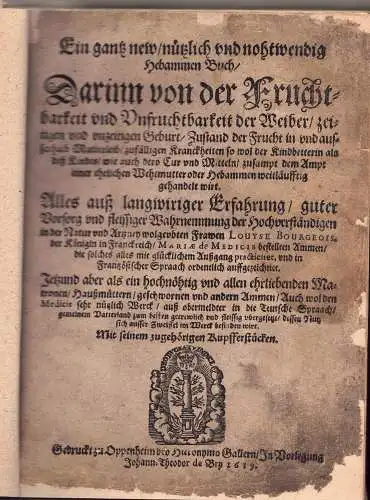 Ein gantz new/nützlich vnd nohtwendig
Hebammen Buch/
Darinn von der Frucht-
barkeit vnd Vnfruchtbarkeit der Weiber/ zei-
tigen vnd vnzeitigen Geburt/ Zustand der Frucht in vnd aus-
Mutterleib/ zufälligen Kranckheiten so wol der Kindbetterin als
deß Kindes/ wie auch dero Cur vnd Mitteln/ zusampt dem Ampt
einer ehrlichen Wehmutter oder Hebammen weitläufftig
gehandelt wirt.
Alles auß langwiriger Erfahrung/ guter
Vorsorg vnd fleissiger Wahrnemmung der Hochverständigen
in der Natur vnd Artzney wolgeübten Frawen LOUYSE BOURGEOIS,
der Königin in Franckreich/ MARIÆ de MEDICIS bestellten Ammen/
die solches alles mit glücklichem Außgang practiciret, vnd in
Frantzösischer Spraach ordenlich auffgezeichnet.
Jetzund aber als ein hochnöhtig vnd allen ehrliebenden Ma-
tronen/ Haußmüttern/ geschwornen vnd andern Ammen/ Auch wol den
Medicis sehr nützlich Werck/ auß obermeldter in die Teutsche Spraach/
gemeinem Vatterland zum besten getrewlich vnd fleissig vbergesetzt/ dessen Nutz
sich ausser Zweiffel im Werck befinden wirt.
Mit seinem zugehörigen Kupfferstücken.
Gedruckt zu Oppenheim bey Hieronymo Gallern/ In Vorlegung
Johann. Theodor de Bry 1619.